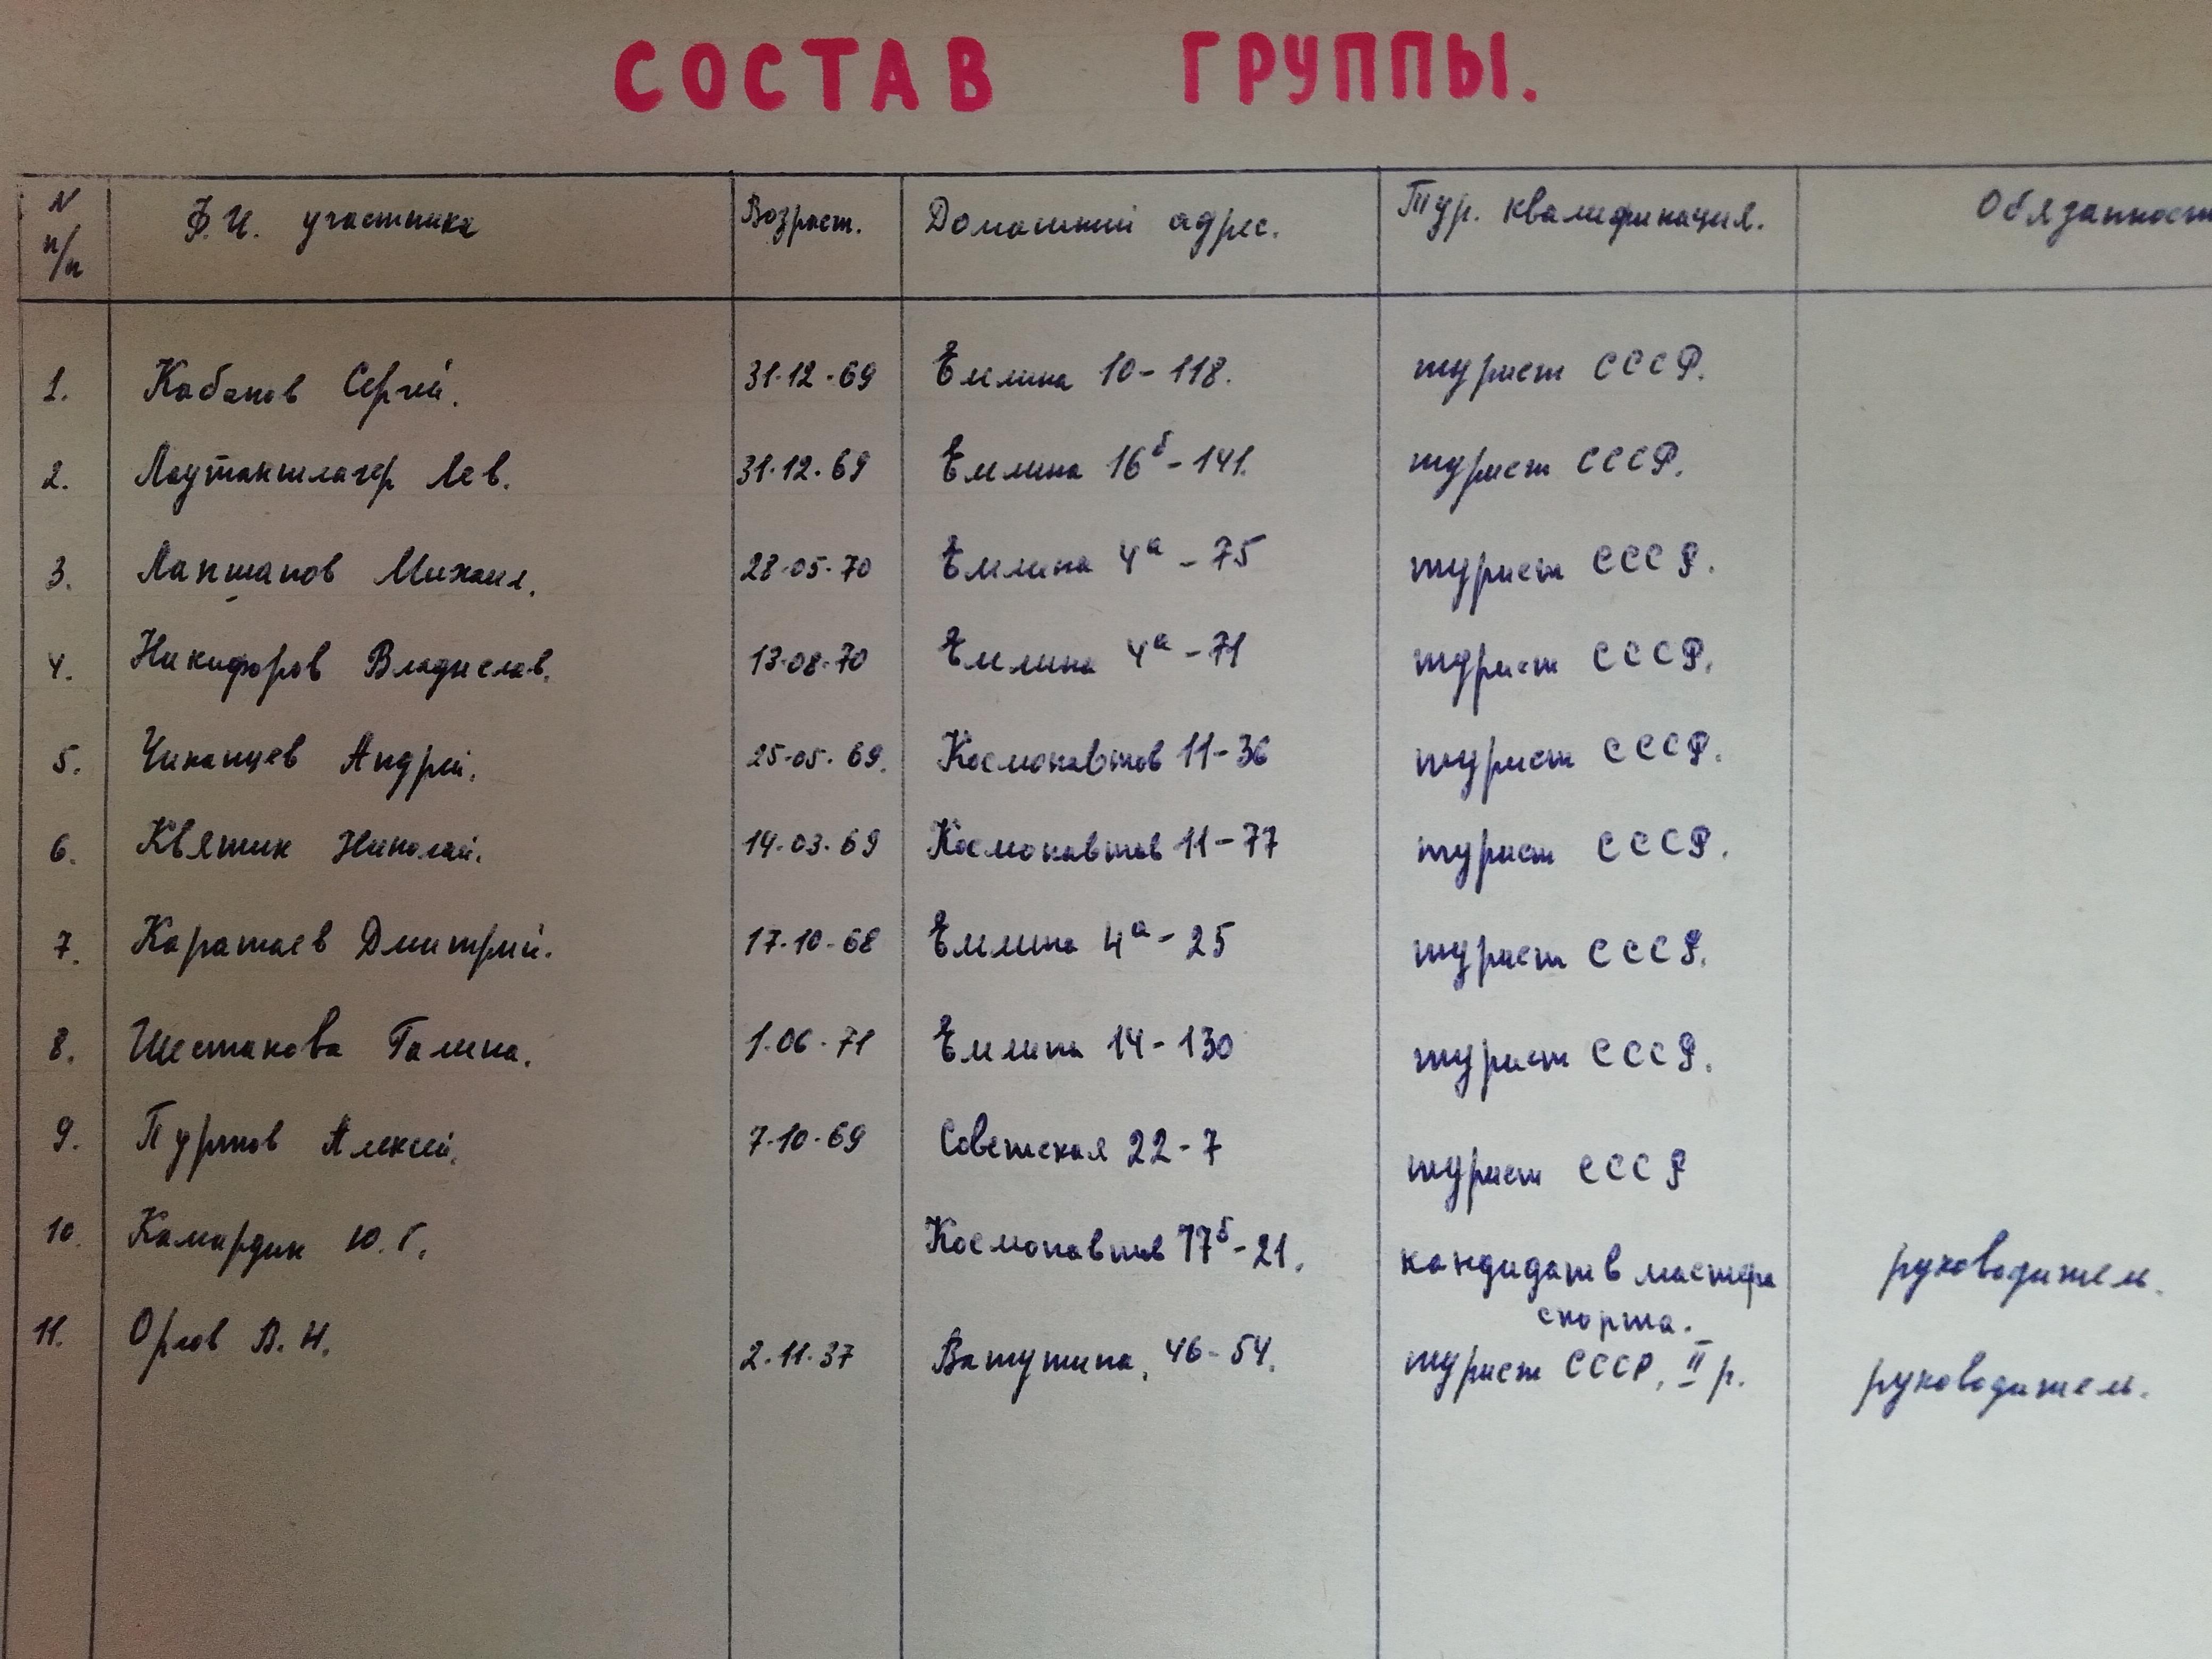 СОСТАВ ГРУППЫ.
N п/п Ф.И. участника Возраст. Домашний адрес. Тур. квалификация. Обязанност
1. Кабанов Сергей. 31.12.69 Емлина 10-118. турист СССР.
2. Лаутаншлагер Лев. 31.12.69 Емлина 16б-141. турист СССР.
3. Лапшанов Михаил. 28.05.70 Емлина 4а-75 турист СССР.
4. Никифоров Владислав. 13.08.70 Емлина 4а-71 турист СССР.
5. Чиканцев Андрей. 25.05.69. Космонавтов 11-36 турист СССР.
6. Квятик Николай. 14.03.69 Космонавтов 11-77 турист СССР.
7. Каратаев Дмитрий. 17.10.68 Емлина 4а-25 турист СССР.
8. Шестакова Галина. 1.06.71 Емлина 14-130 турист СССР.
9. Пургов Алексей. 7.10.69 Советская 22-7 турист СССР
10. Камардин Ю.Г. Космонавтов 17б-21. кандидат в мастера руководитель.
спорта.
11. Орлов В.Н. 2.11.37 Ватутина, 46-54. турист СССР, II р. руководитель.